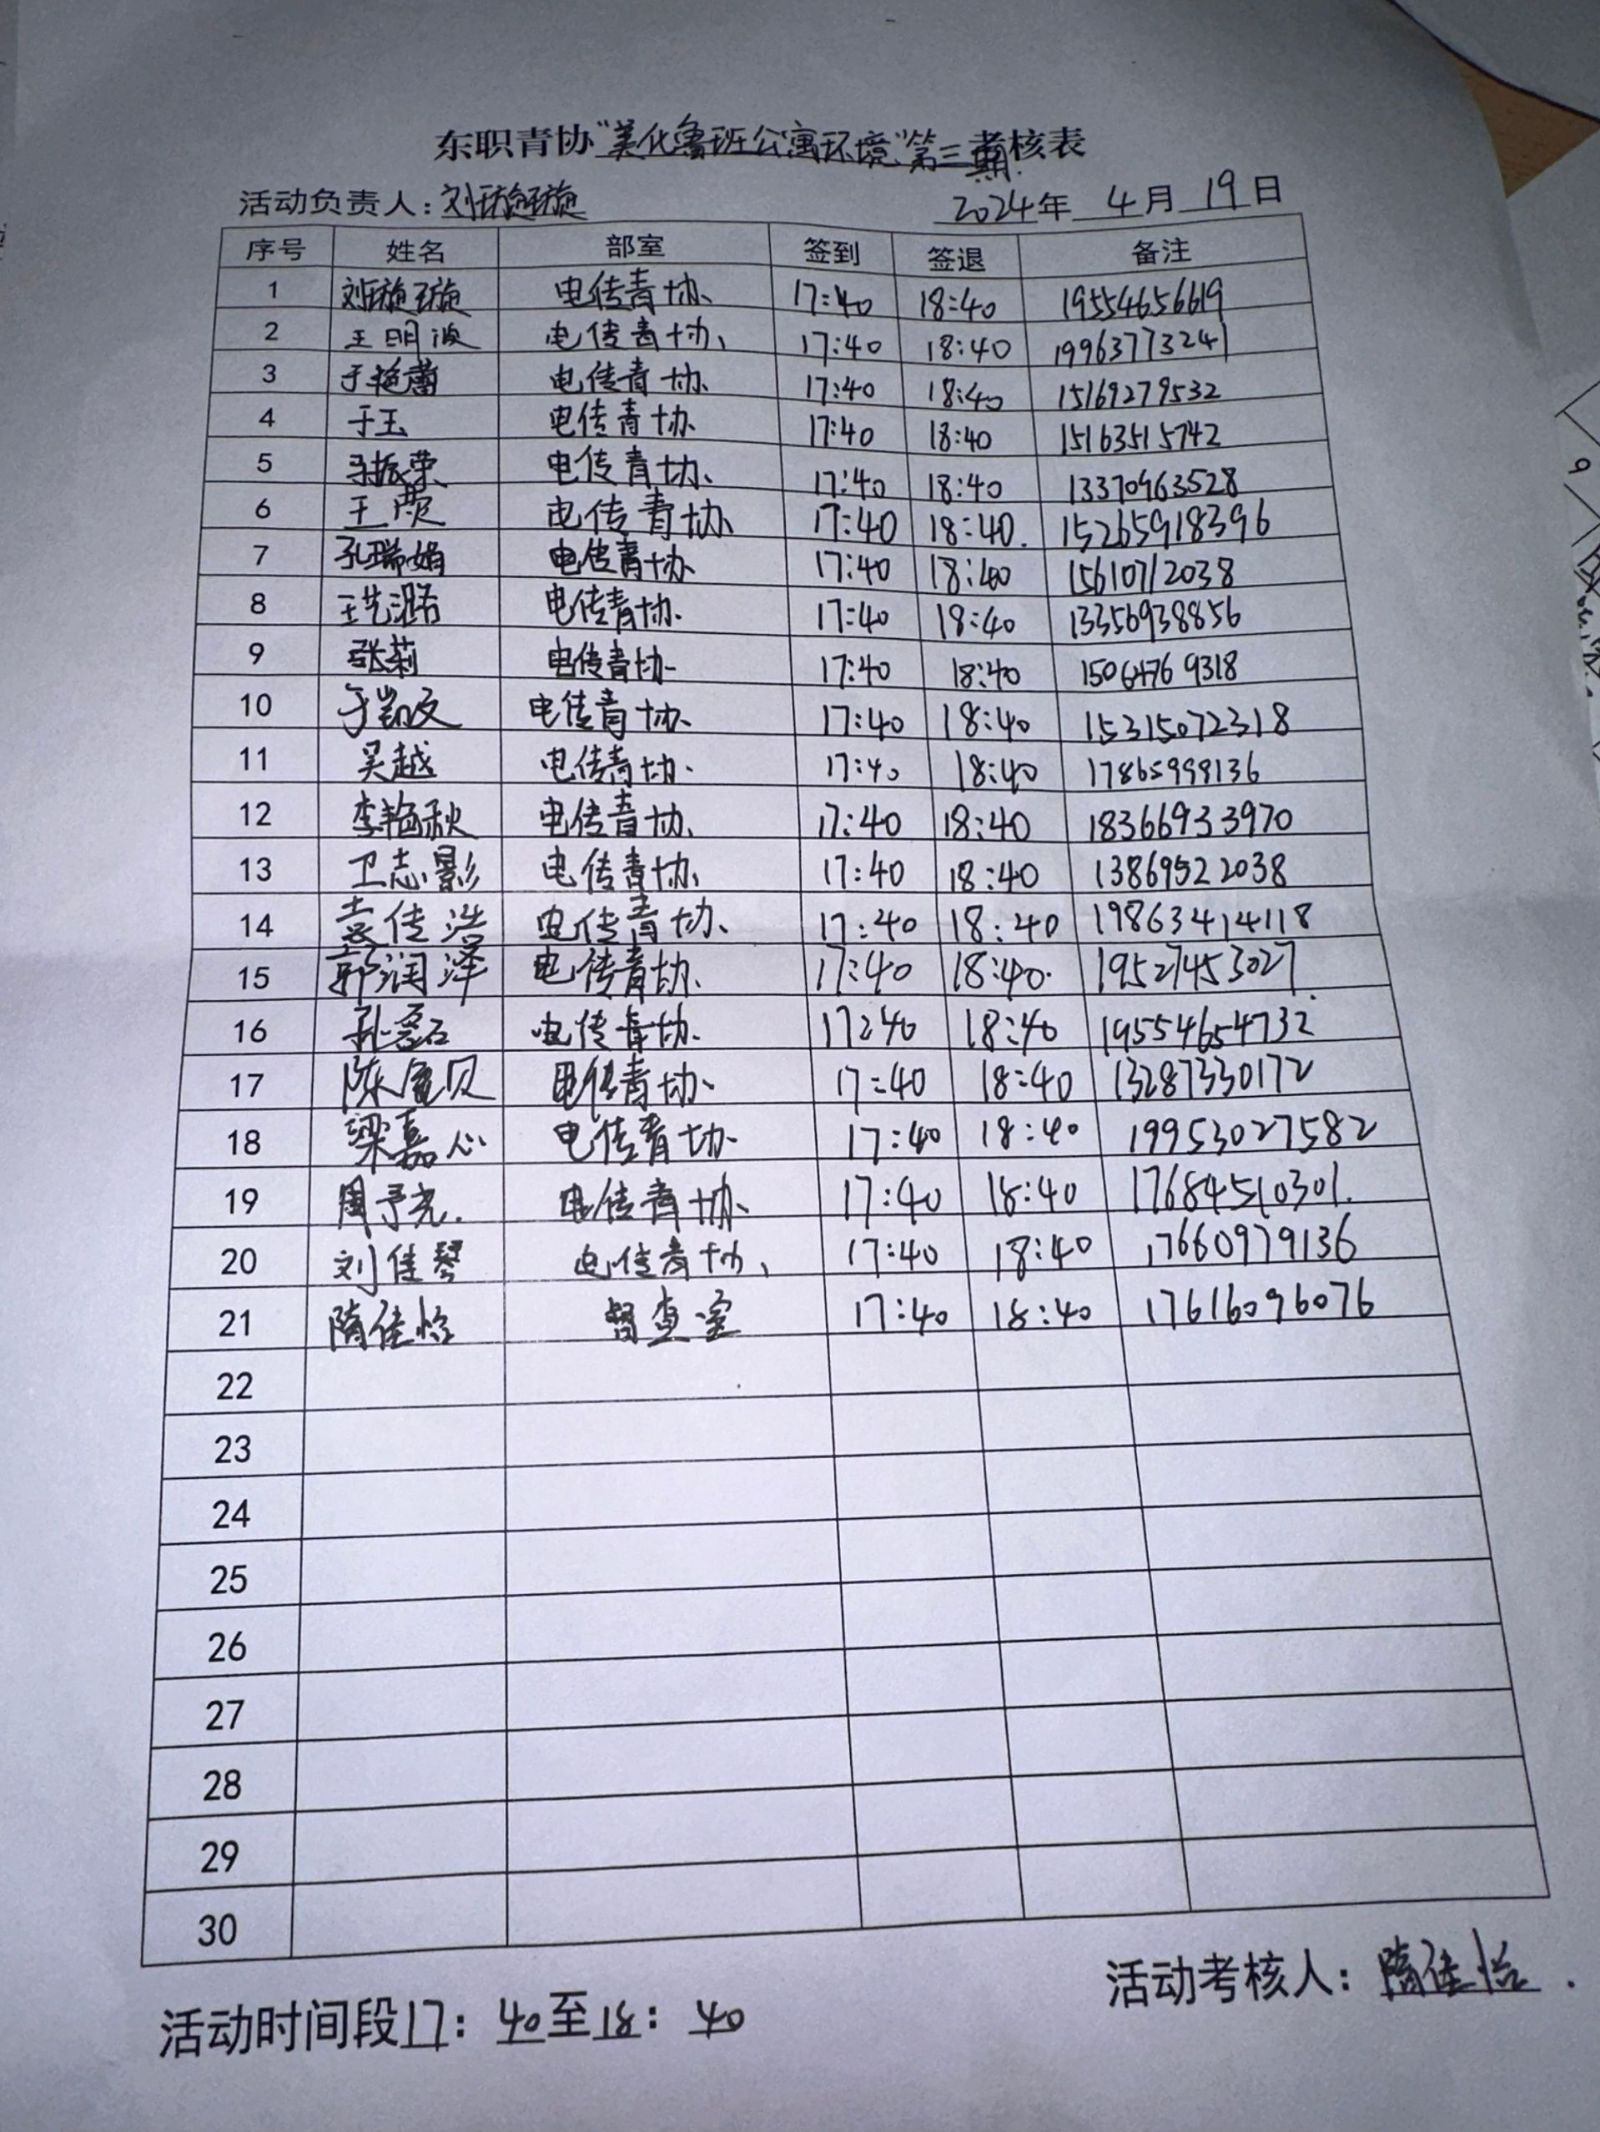 东职青协“美化鲁班公寓环境”第三期考核表
活动负责人：刘璇璇 2024年 4月 19日
序号 姓名 部室 签到 签退 备注
1 刘璇璇 电传青协 17:40 18:40 19554656619
2 王明波 电传青协 17:40 18:40 19963773241
3 于艳蕾 电传青协 17:40 18:40 15169279532
4 于玉 电传青协 17:40 18:40 15163515742
5 马振荣 电传青协 17:40 18:40 13370963528
6 王 电传青协 17:40 18:40. 15265918396
7 孔瑞娟 电传青协 17:40 18:40 15610712038
8 王艺潞 电传青协 17:40 18:40 13356938856
9 张莉 电传青协 17:40 18:40 15064769318
10 于凯文 电传青协 17:40 18:40 15315072318
11 吴越 电传青协 17:40 18:40 17865999136
12 李艳秋 电传青协 17:40 18:40 18366933970
13 卫志影 电传青协 17:40 18:40 13869522038
14 袁传浩 电传青协 17:40 18:40 19863414118
15 郭润泽 电传青协 17:40 18:40. 19527453027
16 孔磊 电传青协 17:40 18:40 19554654732
17 陈 贝 电传青协 17:40 18:40 13287330172
18 梁嘉心 电传青协 17:40 18:40 19953027582
19 周予尧. 电传青协 17:40 18:40 17684510301.
20 刘佳琴 电传青协 17:40 18:40 17660979136
21 隋佳怡 督查室 17:40 18:40 17616096076
22
23
24
25
26
27
28
29
30
活动考核人：隋佳怡.
活动时间段17：40至18：40